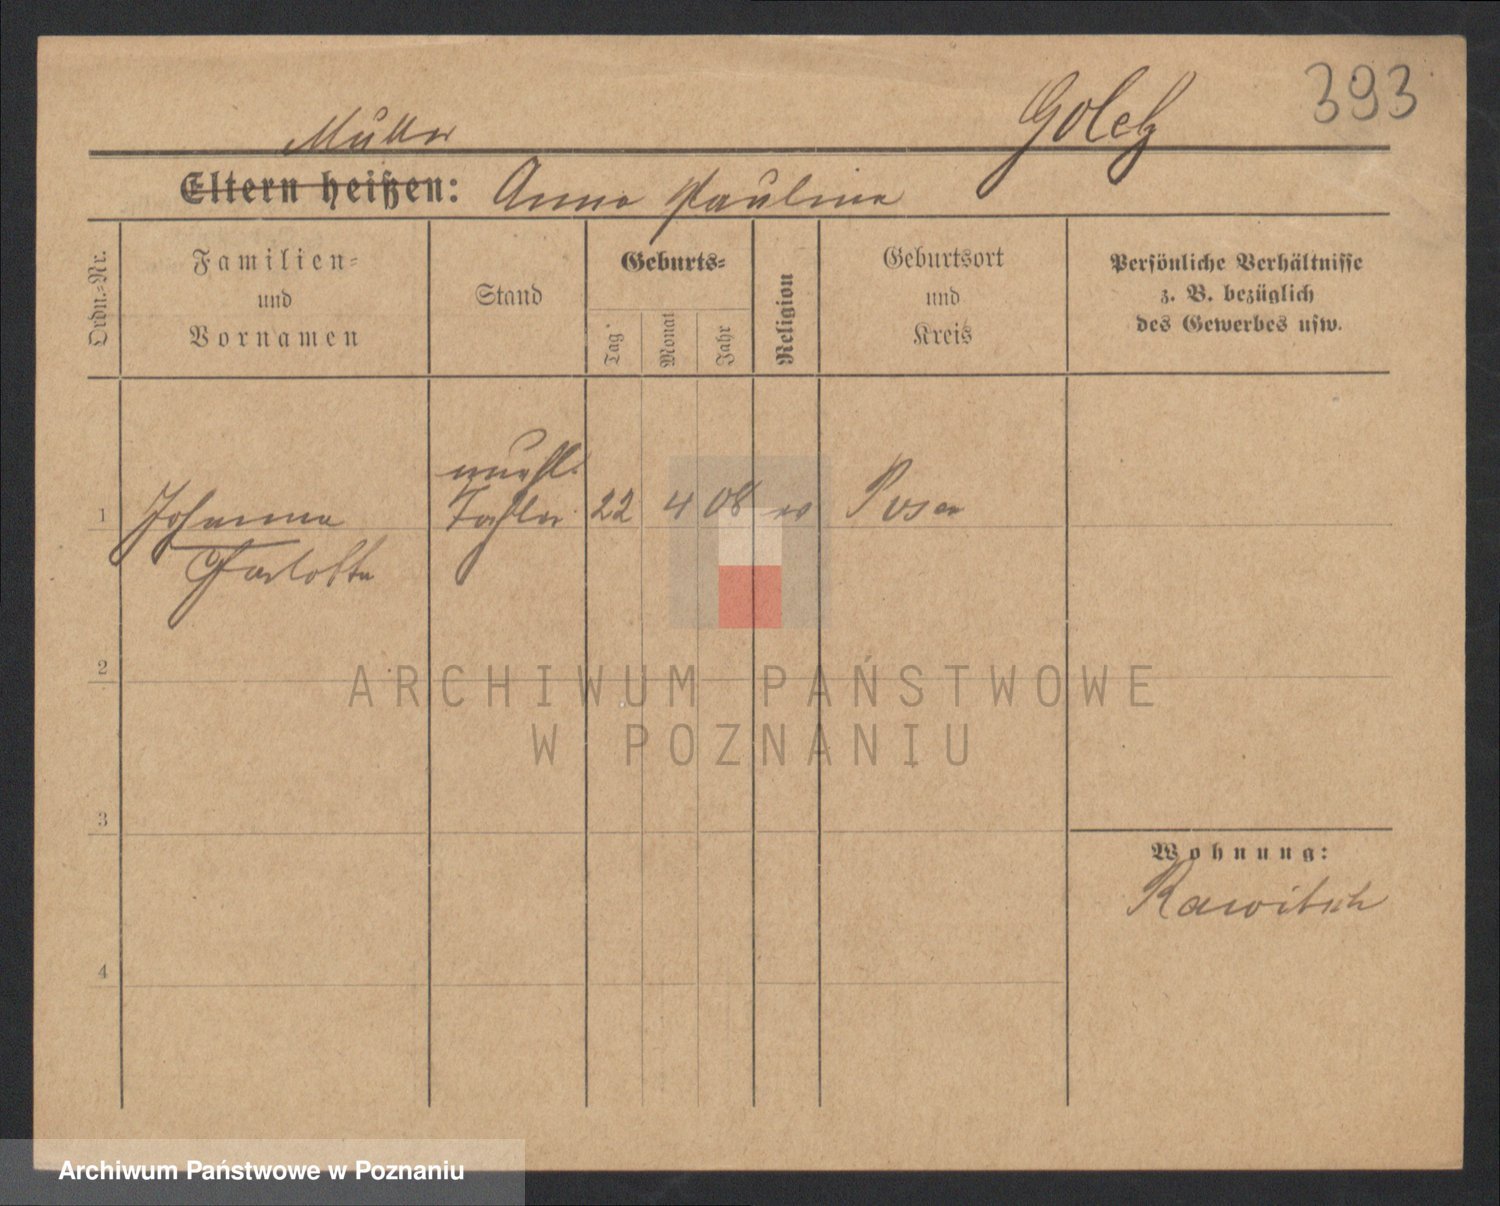 393
Golcz
Mutter
Eltern heißen: Anna Paulina
Ordn.-Nr.
Familien-
und
Vornamen
Stand
Geburts-
Tag
Monat
Jahr
Religion
Geburtsort
und
Kreis
Persönliche Verhältnisse
z. B. bezüglich
des Gewerbes usw.
unehl.
1 Johanna Tochter 22 4 08 Posen
Charlotte
2
3
4
Wohnung:
Rawitsch
ARCHIWUM PAŃSTWOWE
W POZNANIU
Archiwum Państwowe w Poznaniu